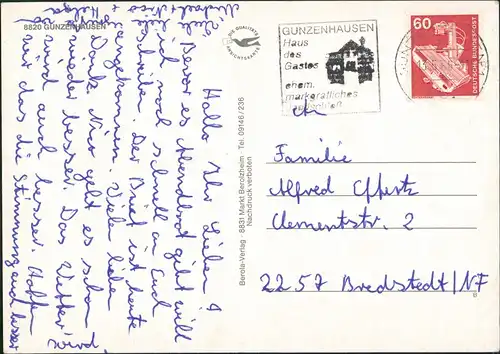 8820 GUNZENHAUSEN
Hallo Ihr Lieben!
Bevor es Abendbrot gibt will
ich noch schnell an Euch
schreiben. Der Brief ist heute
angekommen. Vielen lieben
Dank. Mir geht es schon
wieder besser. Das Wetter wird
auch besser. Hoffen
wir das die Stimmung auch besser
Viele
Michael
+ Helga
DIE QUALITÄTS
ANSICHTSKARTE
Berola-Verlag · 8831 Markt Berolzheim · Tel. 09146/236
Nachdruck verboten
GUNZENHAUSEN
Haus
des
Gastes
ehem.
markgräfliches
60
DEUTSCHE BUNDESPOST
An
Familie
Alfred Effertz
Clementstr. 2
2257 Bredstedt/NF